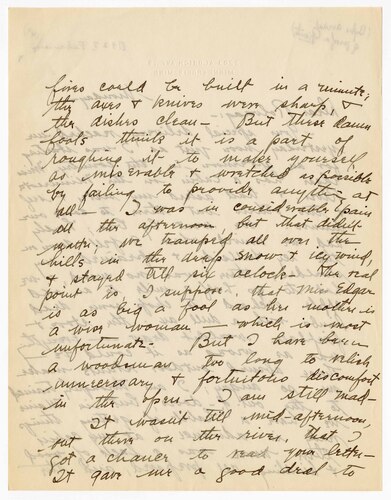 fires could be built in a minute;
the axes & knives were sharp, &
the dishes clean— But these damn
fools think it is a part of
roughing it to make yourself
as miserable & wretched as possible
by failing to provide anything at
all— I was in considerable pain
all the afternoon but that didn't
matter; we tramped all over the
hills in the deep snow & icy wind,
& stayed till six oclock— The real
point is, I suppose, that Miss Edgar
is as big a fool as her mother is
a wise woman — which is most
unfortunate— But I have been
a woodsman too long to relish
unnecessary & fortuitous discomfort
in the open— I am still mad—
It wasn't till mid-afternoon,
out there on the river, that I
got a chance to read your letter—
It gave me a good deal to